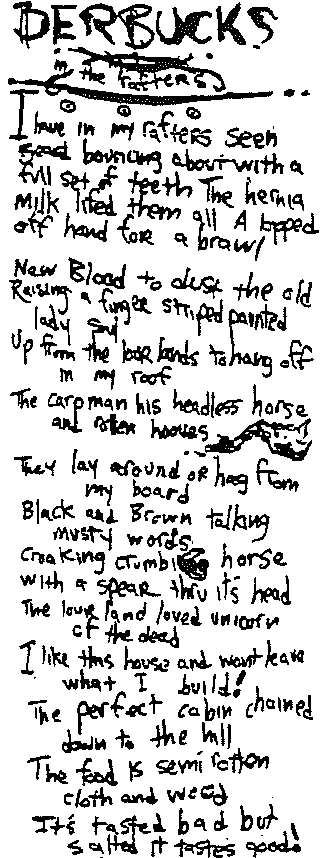 DERBUCKS
in the rafters
I have in my rafters seen
seed bouncing about with a
full set of teeth The hernia
Milk lifed them all A lopped
off hand fore a brawl
New Blood to dust the old
Raising a finger striped painted
lady soul
Up from the look lands to hang off
in my roof
The carpman his headless horse
and rotten hooves
They lay around or hag from
my board
Black and Brown talking
musty words
Croaking crumbling horse
with a spear thru it's head
The love land loved unicorn
of the dead
I like this house and wont leave
what I build!
The perfect cabin chained
down to the hill
The food is semi rotton
cloth and weed
It's tasted bad but
salted it tastes good!